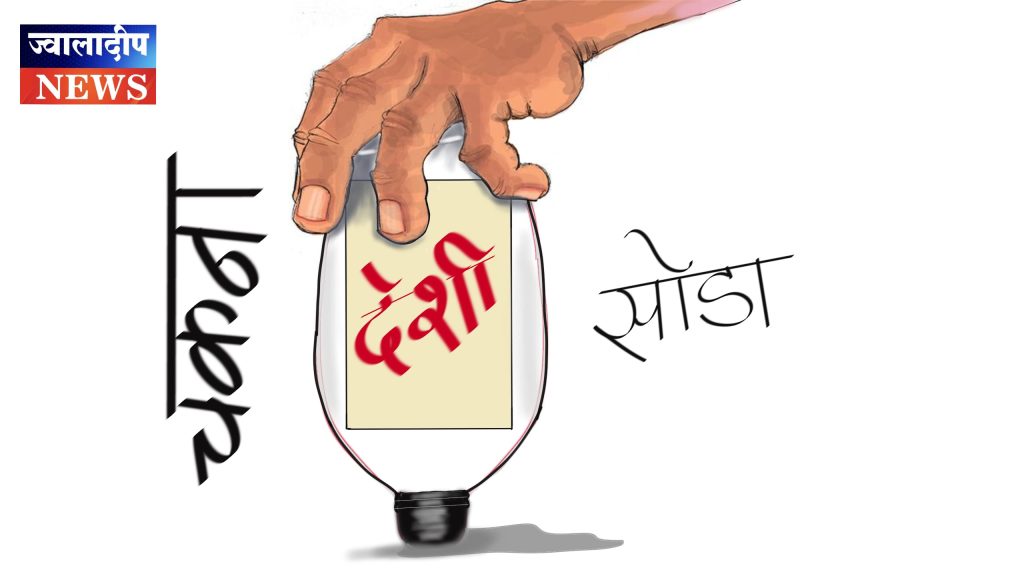 ज्वालादीप
NEWS
चकना
देशी
सोडा